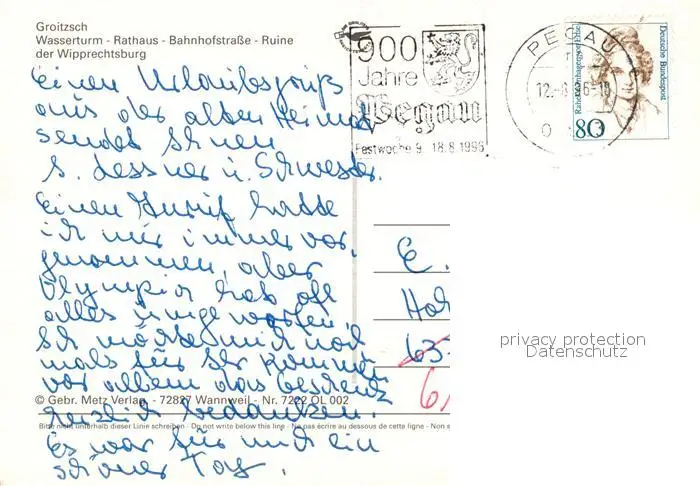 Groitzsch
Wasserturm - Rathaus - Bahnhofstraße - Ruine
der Wipprechtsburg
900
Jahre
Pegau
Festwoche 9. 18.8.1996
PEGAU
12.-8.96-10
0
Deutsche Bundespost
Rahel Varnhagen von Ense
80
Einen Urlaubsgruß
aus der alten Heimat
sendet Ihnen
S. Dessner u. Schwester.
Einen Anruf hatte
ich mir immer vor,
genommen, aber
Olympia hat oft
alles umgeworfen.
Ich möchte mich noch
mals für Ihr Kommen
vor allem das Geschenk
herzlich bedanken.
Es war für mich ein
schöner Tag.
E.
63
6
privacy protection
Datenschutz
© Gebr. Metz Verlag - 72827 Wannweil - Nr. 7222 OL 002
Bitte nicht unterhalb dieser Linie schreiben · Do not write below this line · Ne pas écrire au dessous de cette ligne · Non s